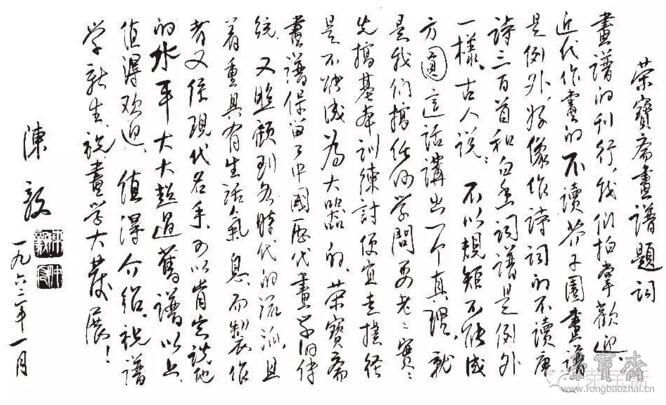 荣寳斋畫譜題词
畫譜的刊行，我们拍掌歡迎。
近代作畫的不讀芥子園畫譜
是例外，好像作诗词的不讀唐
诗三百首和白香词谱是例外
一樣。古人说：不以規矩不能成
方圓，這话講出一个真理，就
是我们搞任何学問要老老實實
先搞基本訓練，討便宜走捷徑
是不能成为大器的。荣寳斋
畫谱保留了中國歷代畫学的传
统，又照顾到各時代的流派，且
着重具有生活氣息，而製作
者又係現代名手，可以肯定说他
的水平大大超過舊譜。以上
值得欢迎，值得介绍。祝譜
学新生，祝畫学大發展！
陳毅
一九六二年一月
榮寶齋
www.rongbaozhai.cn